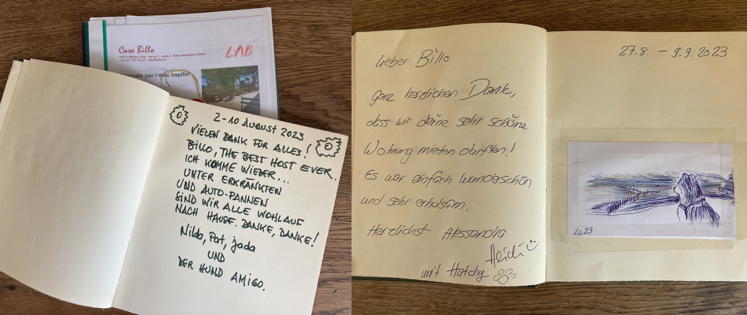 Casa Billo
LAB
per i miei ospiti
2-10 AUGUST 2023
VIELEN DANK FÜR ALLES!
BILLO, THE BEST HOST EVER.
ICH KOMME WIEDER...
UNTER ERKRANKTEN
UND AUTO-PANNEN
SIND WIR ALLE WOHLAUF
NACH HAUSE. DANKE, DANKE!
Nilda, Pat, Jada
UND
DER HUND AMIGO.
Lieber Billo
ganz herzlichen Dank,
dass wir deine sehr schöne
Wohnung mieten durften!
Es war einfach wunderschön
und sehr erholsam.
Herzlichst Alessandra
Heidi
mit Hatchy
27.8. – 9.9.2023
2023